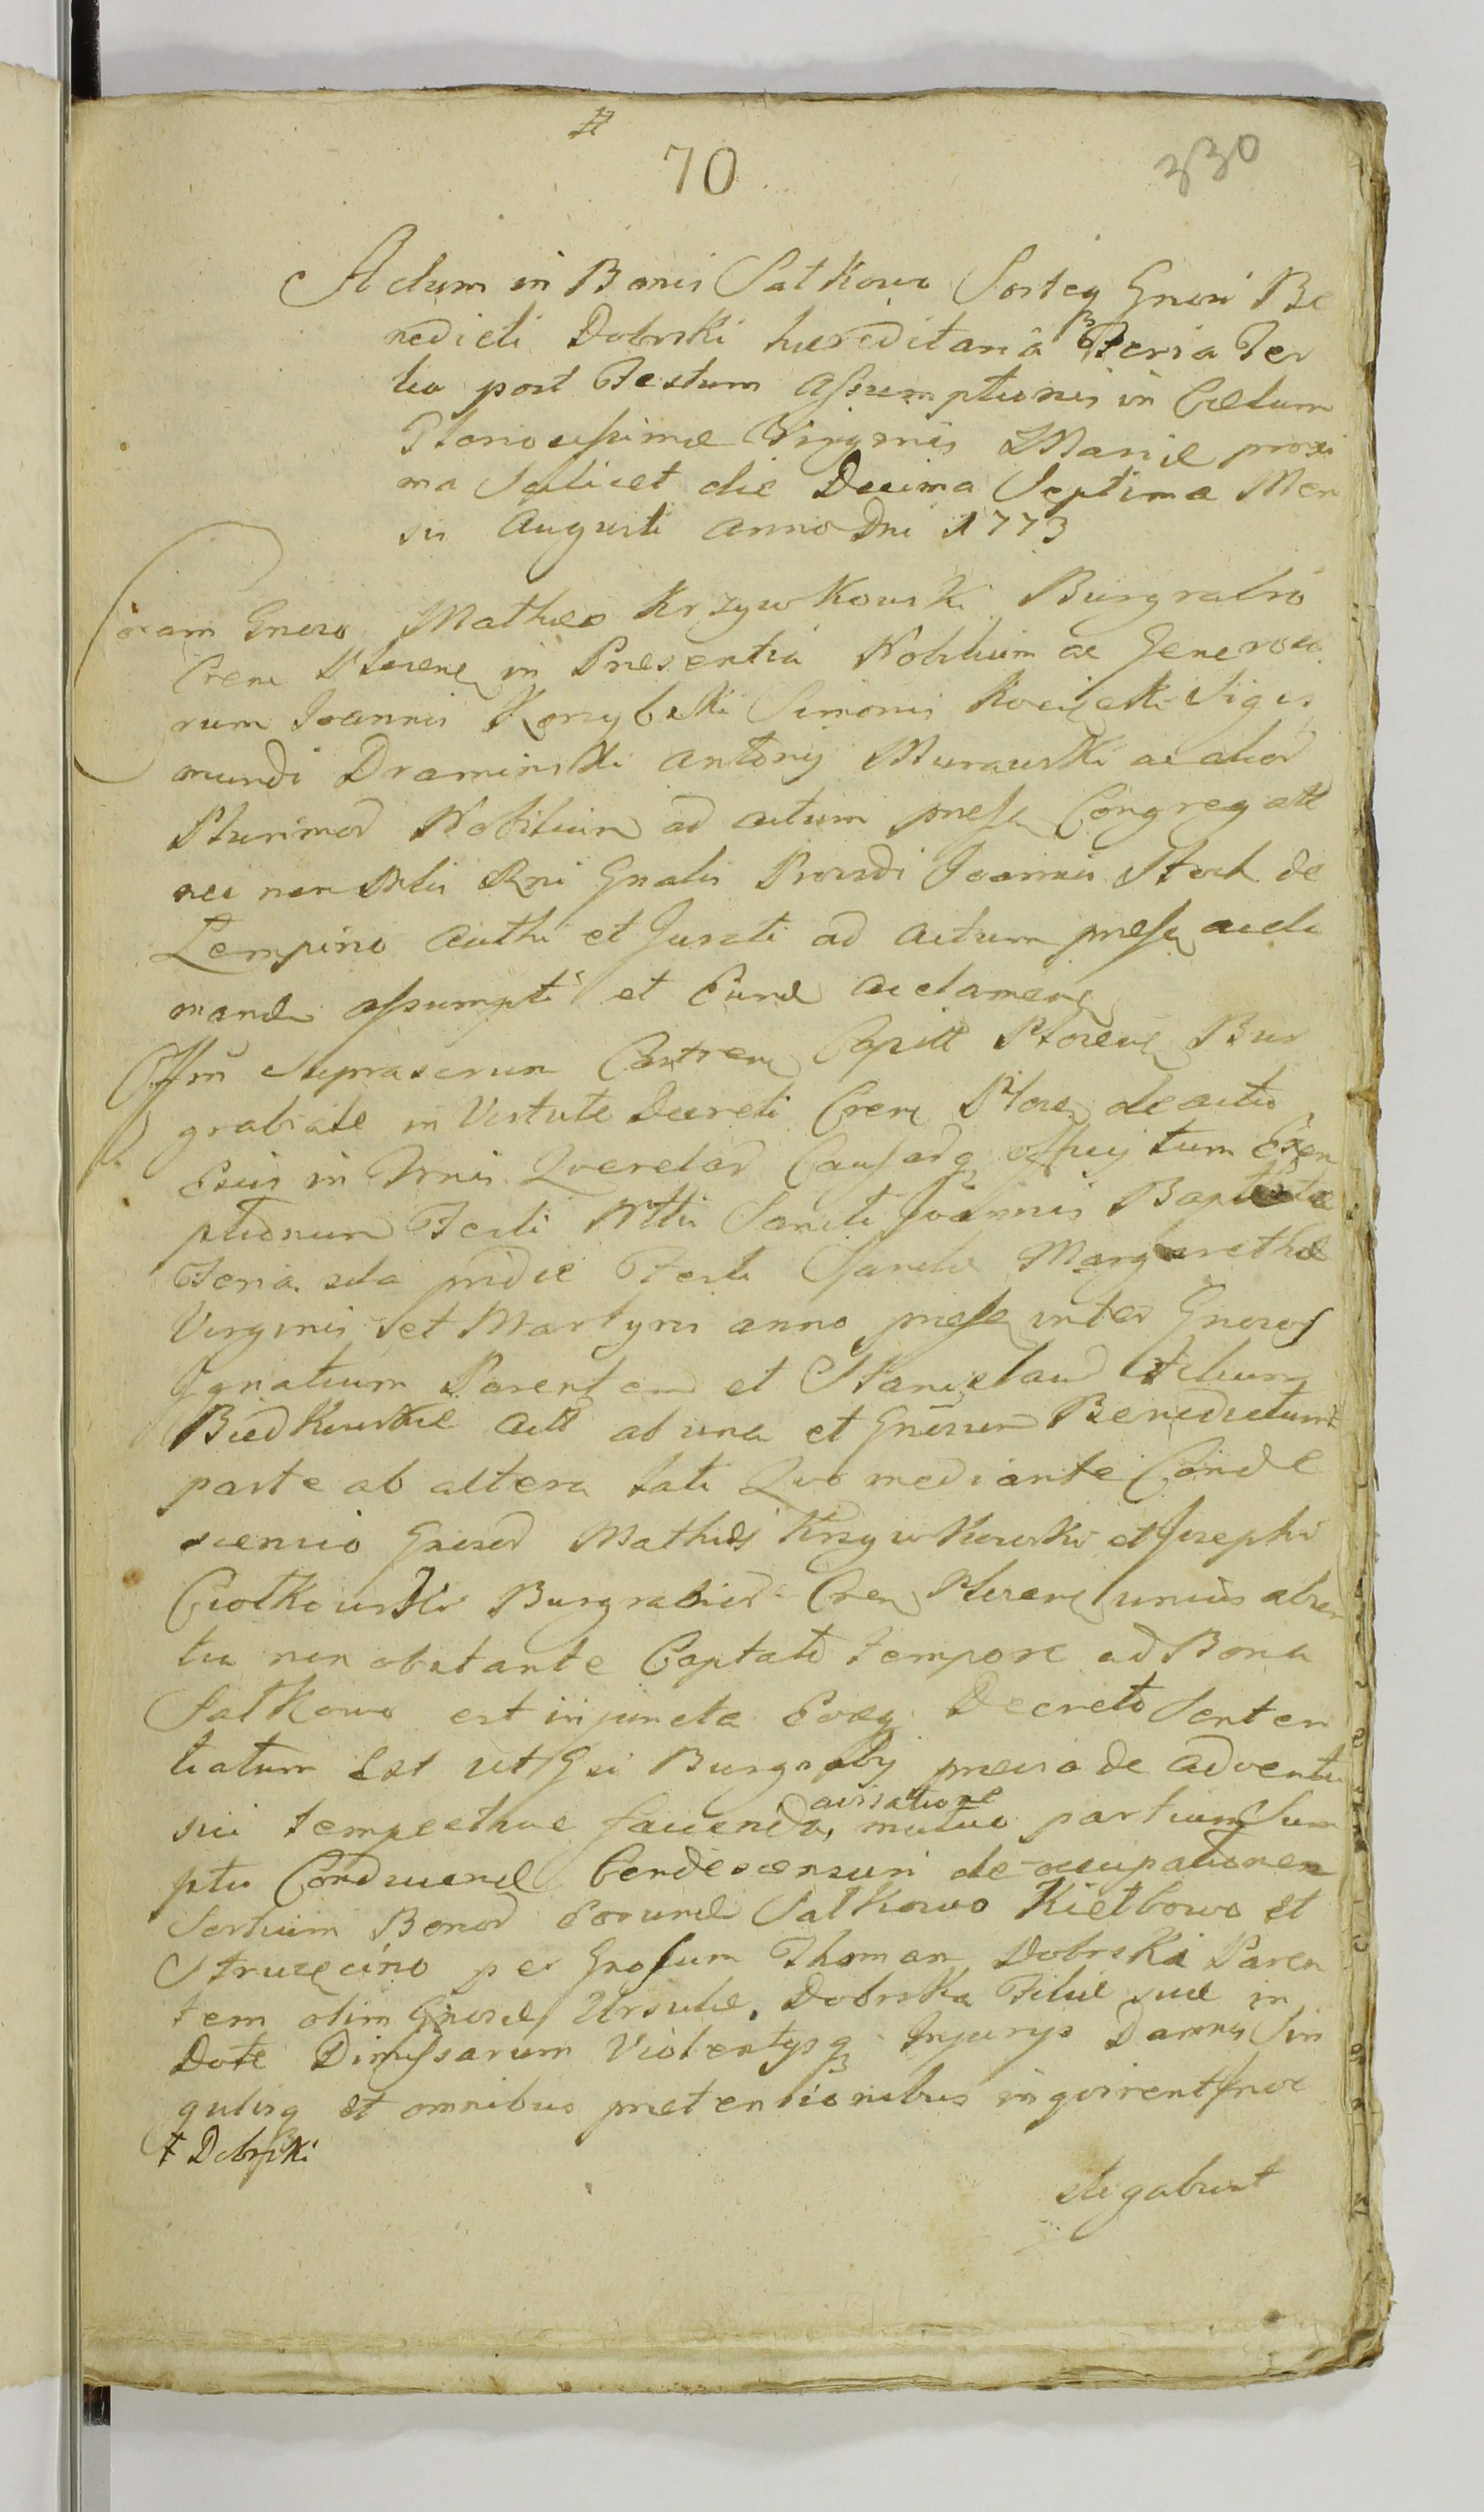 #
70
330
Actum in Bonis Satkowo Sorteq Gnosi Be
nedicti Dobrski hæreditaria Feria Ter
tia post Festum Assumptionis in Cælum
Gloriosissimæ Virginis Mariæ proxi
ma Scilicet die Decima Septima Men
sis Augusti anno Dni 1773
Coram Gnoso Matheo Krzywkowski Burgrabio
Cren Plocen in Præsentia Nobilium ac Generoso
rum Joannis Korzybski Simonis Sigis
mundi Dramiński Antonij Murawski ac alior
Plurimor Nobilium ad actum præsen Congregat
nec non Mtli Rni Gnalis Providi Joannis Stoch de
Lempino Authi et Jurati ad actum præsen accla
mand assumpti et Eund acclamen
Offm Suprascrum Castren Capitt Plocen Bur
grabiale in Virtute Decreti Cren Plocen de actu
Ejus in Trnis Querelar Causarq offij tum Exem
ptionum Festi Ntlis Sancti Joannis Baptistæ
Feria 2da pridie Festi Sanctæ Margarethæ
Virginis et Martyris anno præsen inter Gnosos
Ignatium Parentem et Stanislaum Filium
Biedkowskie Act ab una et Gnosum Benedictum ŧ
parte ab altera lati Quo mediante Conde
scensio Gnosor Mathei Krzywkowski et Josephi
Ciołkowski Burgrabior Cren Plocen unius absen
tia non obstante Captato tempore ad Bona
Satkowo est injuncta Eoq Decreto Senten
tiatum est ut Gsi Burgrabij prævia de adventu
sui tempestive facienda, avisatione mutuo partium Sum
ptu Conducend Condescensuri de occupationen
Sortium Bonor Eorund Satkowo Kiełbowo et
Struzęcino per Gnosum Thoman Dobrski Paren
tem olim Gnosæ Ursulæ Dobrska Filiæ suæ in
Dote Dimissarum Violentijsq Injurys Damnis Sin
gulisq et omnibus prætensionibus inqvirent Inve
ŧ Dobrski
stigabunt